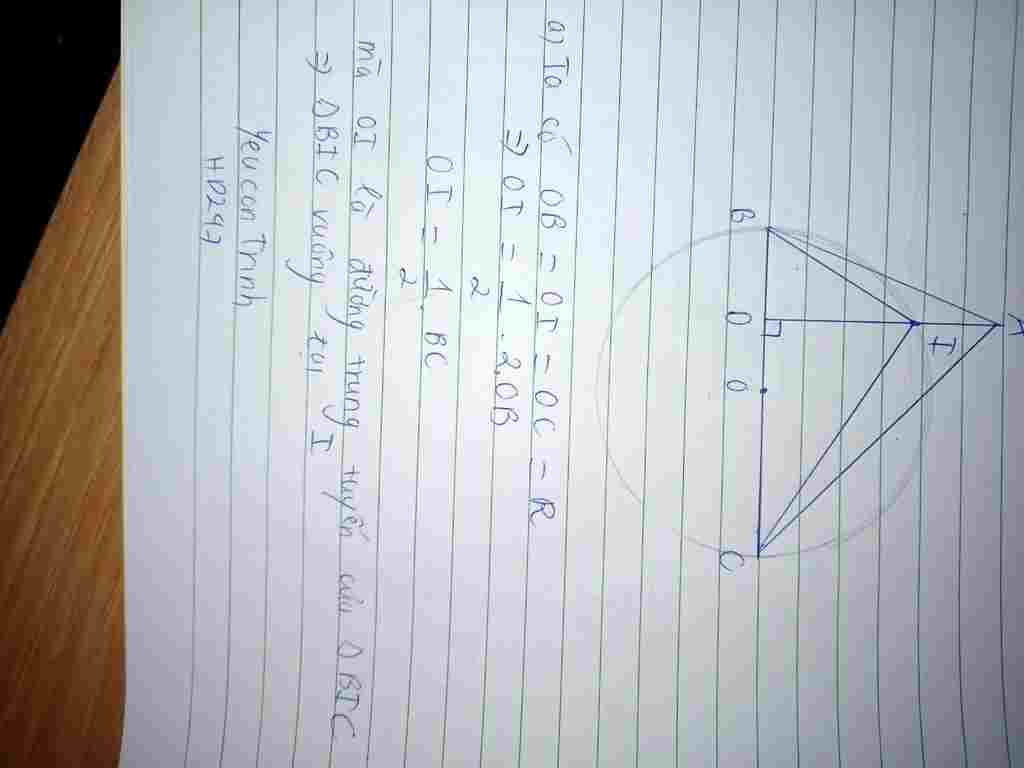 A
I
B
D
O
C
a) Ta có OB = OI = OC = R
=> OI = 1/2 . 2.OB
OI = 1/2 . BC
mà OI là đường trung tuyến của Δ BIC
=> Δ BIC vuông tại I
Yeu con Trinh
HD247